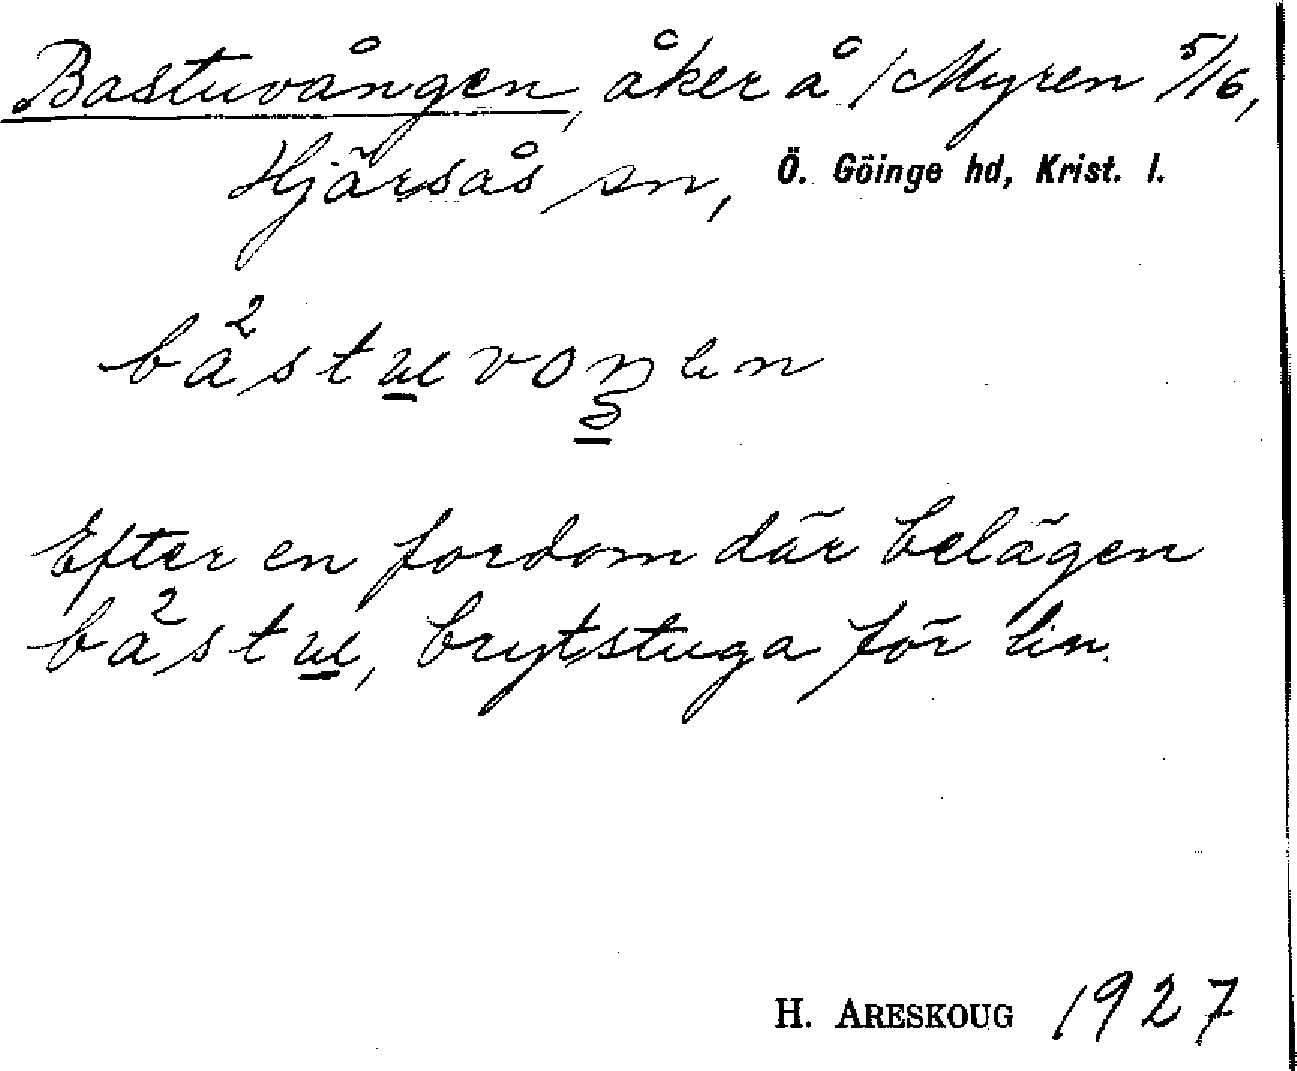 Bastuvången, åker å /Myren 5/16,
Hjärsås sn, Ö. Göinge hd, Krist. l.
Efter en fordom där belägen
brytstuga för lin.
H. ARESKOUG 1927